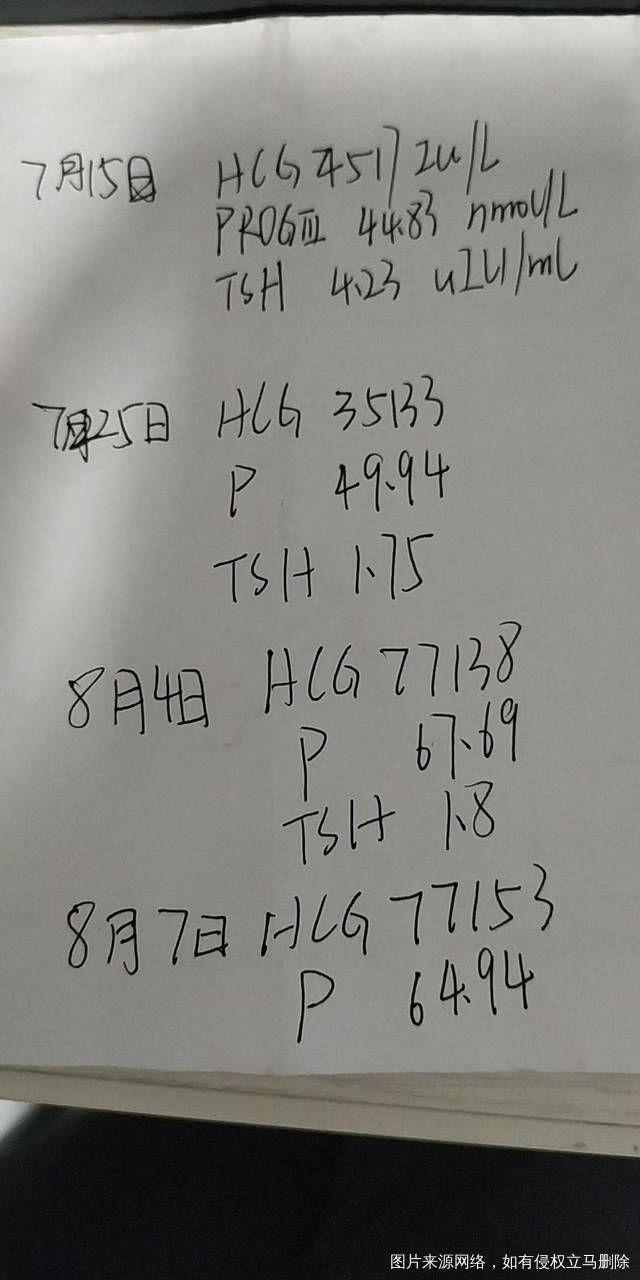 7月15日 HCG 4517 IU/L
PROGIII 44.83 nmol/L
TSH 4.23 uIU/mL
7月25日 HCG 35133
P 49.94
TSH 1.75
8月4日 HCG 77138
P 67.69
TSH 1.8
8月7日 HCG 77153
P 64.94
图片来源网络，如有侵权立马删除